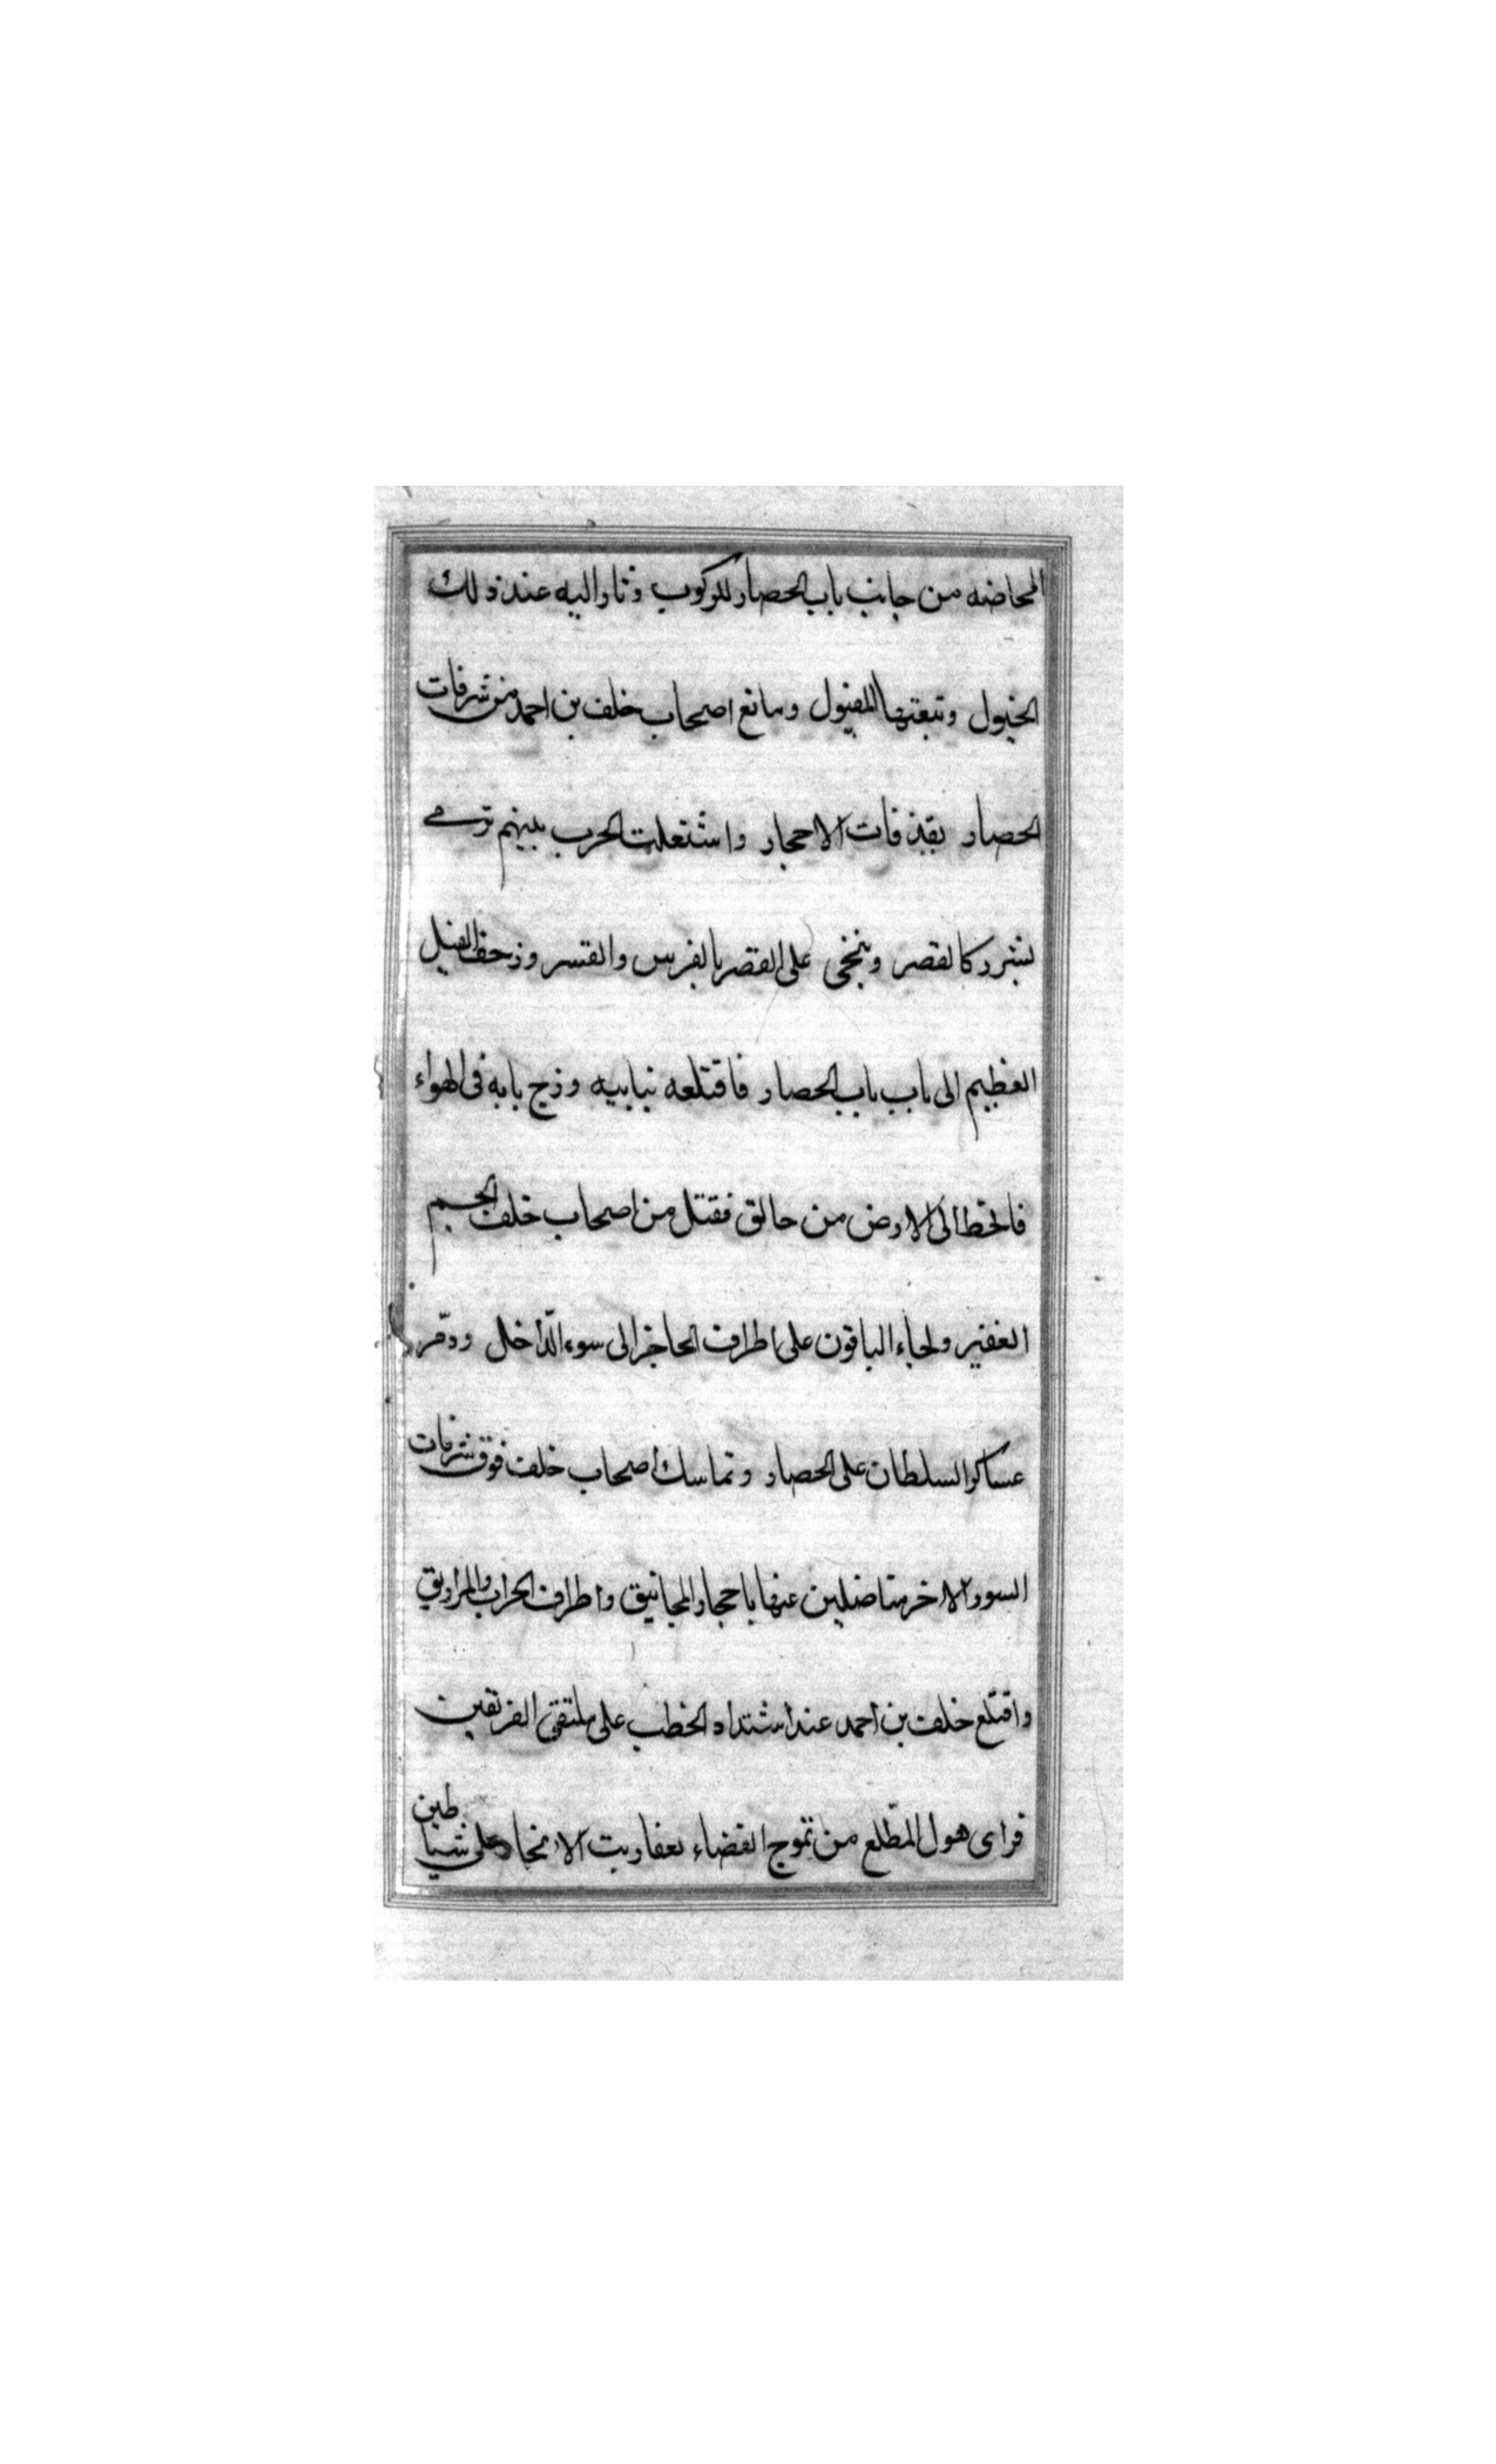 المحاضه من جانب باب الحصار للركوب وثار اليه عند ذلك
الخيول وتبعتها الفيول ومانع اصحاب خلف بن احمد من شرفات
الحصار بقذفات الاحجار واشتعلت الحرب بينهم ترمى
بشرر كالقصر وينخى على القصر بالفرس والقسر وزحف الفيل
العظيم الى باب باب الحصار فاقتلعه بنابيه وزج بابه فى الهواء
فانحط الى الارض من حالق فقتل من اصحاب خلف الجم
الغفير ولجاء الباقون على اطراف الحاجز الى سوء الدّاخل ودمّر
عساكر السلطان على الحصار وتماسك اصحاب خلف فوق شرفات
السور الاخر مناضلين عنها باحجار المجانيق واطراف الحراب والمزاريق
واقتلع خلف بن احمد عند اشتداد الخطب على ملتقى الفريقين
فراى هول المطّلع من تموج الفضاء بعفاريت الانجاد على شياطين